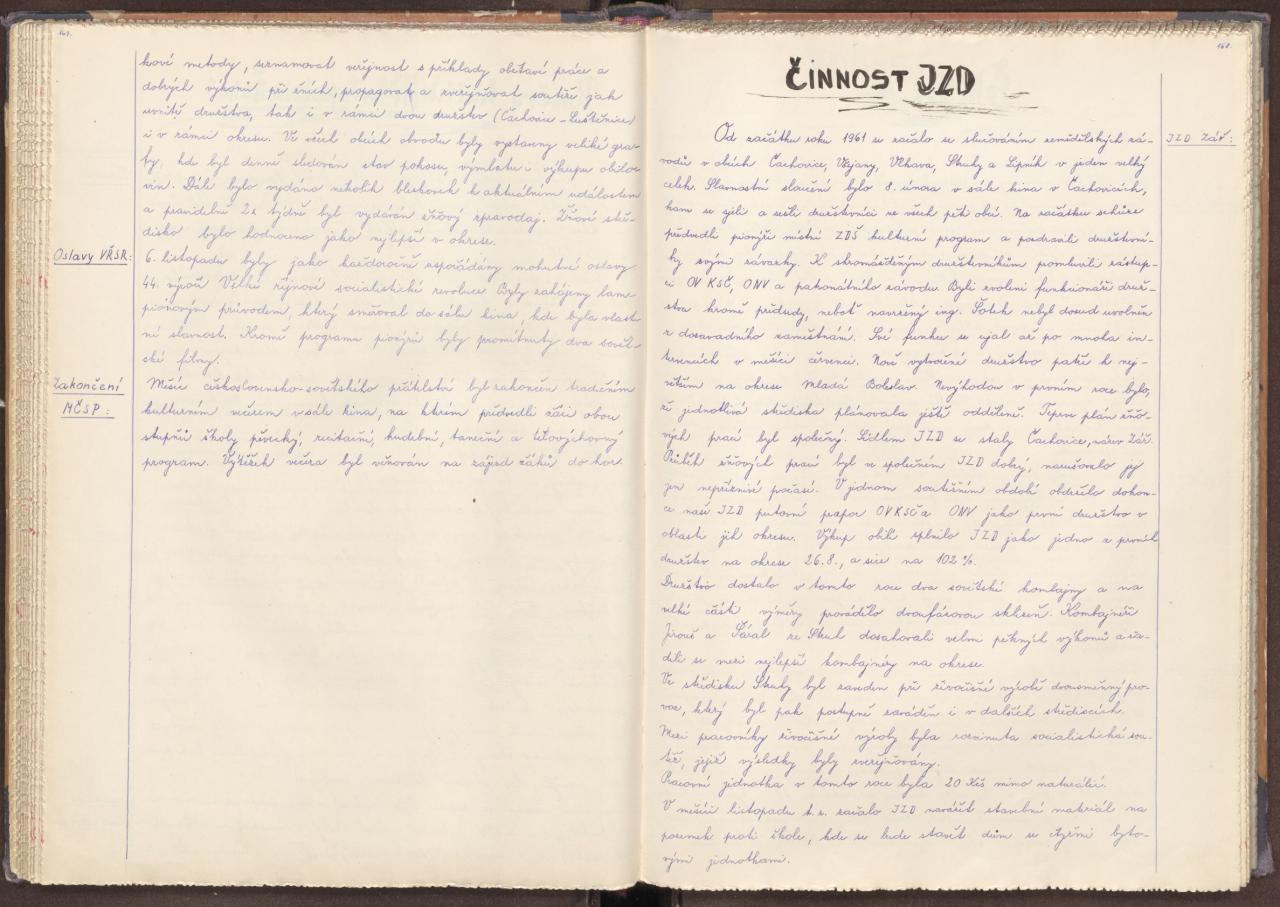 167.
kové metody, seznamovat veřejnost s příklady obětavé práce a
dobrých výkonů při žních, propagovat a zveřejňovat soutěže jak
uvnitř družstva, tak i v rámci dvou družstev (Čachovice - Luštěnice)
i v rámci okresu. Ve všech obcích obvodu byly vystaveny veliké gra-
fy, kde byl denně sledován stav pokosu, výmlatu i výkupu obilo-
vin. Dále bylo vydáno několik bleskovek k aktuálním událostem
a pravidelně 2x týdně byl vydáván žňový zpravodaj. Žňové stře-
disko bylo hodnoceno jako nejlepší v okrese.
Oslavy VŘSR:
6. listopadu byly jako každoročně uspořádány mohutné oslavy
44. výročí Velké říjnové socialistické revoluce. Byly zahájeny lam-
piónovým průvodem, který směřoval do sálu kina, kde byla vlast-
ní slavnost. Kromě programu pionýrů byly promítnuty dva sovět-
ské filmy.
Zakončení
MČSP:
Měsíc československo-sovětského přátelství byl zakončen tradičním
kulturním večerem v sále kina, na kterém předvedli žáci obou
stupňů školy pěvecký, recitační, hudební, taneční a tělovýchovný
program. Výtěžek večera byl věnován na zájezd žáků do hor.
168.
ČINNOST JZD
JZD Zář:
Od začátku roku 1961 se začalo se slučováním zemědělských zá-
vodů v obcích Čachovice, Vlkava, Struhy a Lipník v jeden velký
celek. Slavnostní sloučení bylo 8. února v sále kina v Čachovicích,
kam se sjeli a sešli družstevníci ze všech pěti obcí. Na začátku schůze
předvedli pionýři místní ZDŠ kulturní program a pozdravili družstevní-
ky svými závazky. K shromážděným družstevníkům promluvili zástup-
ci OV KSČ, ONV a patronátního závodu. Byli zvoleni funkcionáři druž-
stva kromě předsedy, neboť navržený ing. Šotek nebyl dosud uvolněn
z dosavadního zaměstnání. Své funkce se ujal až po mnoha in-
tervencích v měsíci červenci. Nově vytvořené družstvo patří k nej-
větším na okrese Mladá Boleslav. Nevýhodou v prvním roce bylo,
že jednotlivá střediska plánovala ještě odděleně. Teprve plán žňo-
vých prací byl společný. Sídlem JZD se staly Čachovice, název Zář.
Průběh žňových prací byl ve společném JZD dobrý, narušovalo jej
jen nepříznivé počasí. V jednom soutěžním období obdrželo dokon-
ce naše JZD putovní prapor OV KSČ a ONV jako první družstvo v
oblasti jih okresu. Výkup obilí splnilo JZD jako jedno z prvních
družstev na okrese 26.8., a sice na 102 %.
Družstvo dostalo v tomto roce dva sovětské kombajny a na
velké části výměry provádělo dvoufázovou sklizeň. Kombajnéři
Jirouš a Šáral ze Struh dosahovali velmi pěkných výkonů a řa-
dili se mezi nejlepší kombajnéry na okrese.
Ve středisku Struhy byl zaveden při živočišné výrobě dvousměnný pro-
voz, který byl pak postupně zaváděn i v dalších střediscích.
Mezi pracovníky živočišné výroby byla rozvinuta socialistická sou-
těž, jejíž výsledky byly zveřejňovány.
Pracovní jednotka v tomto roce byla 20 Kčs mimo naturálií.
V měsíci listopadu t.r. začalo JZD navážet stavební materiál na
pozemek proti škole, kde se bude stavět dům se čtyřmi byto-
vými jednotkami.